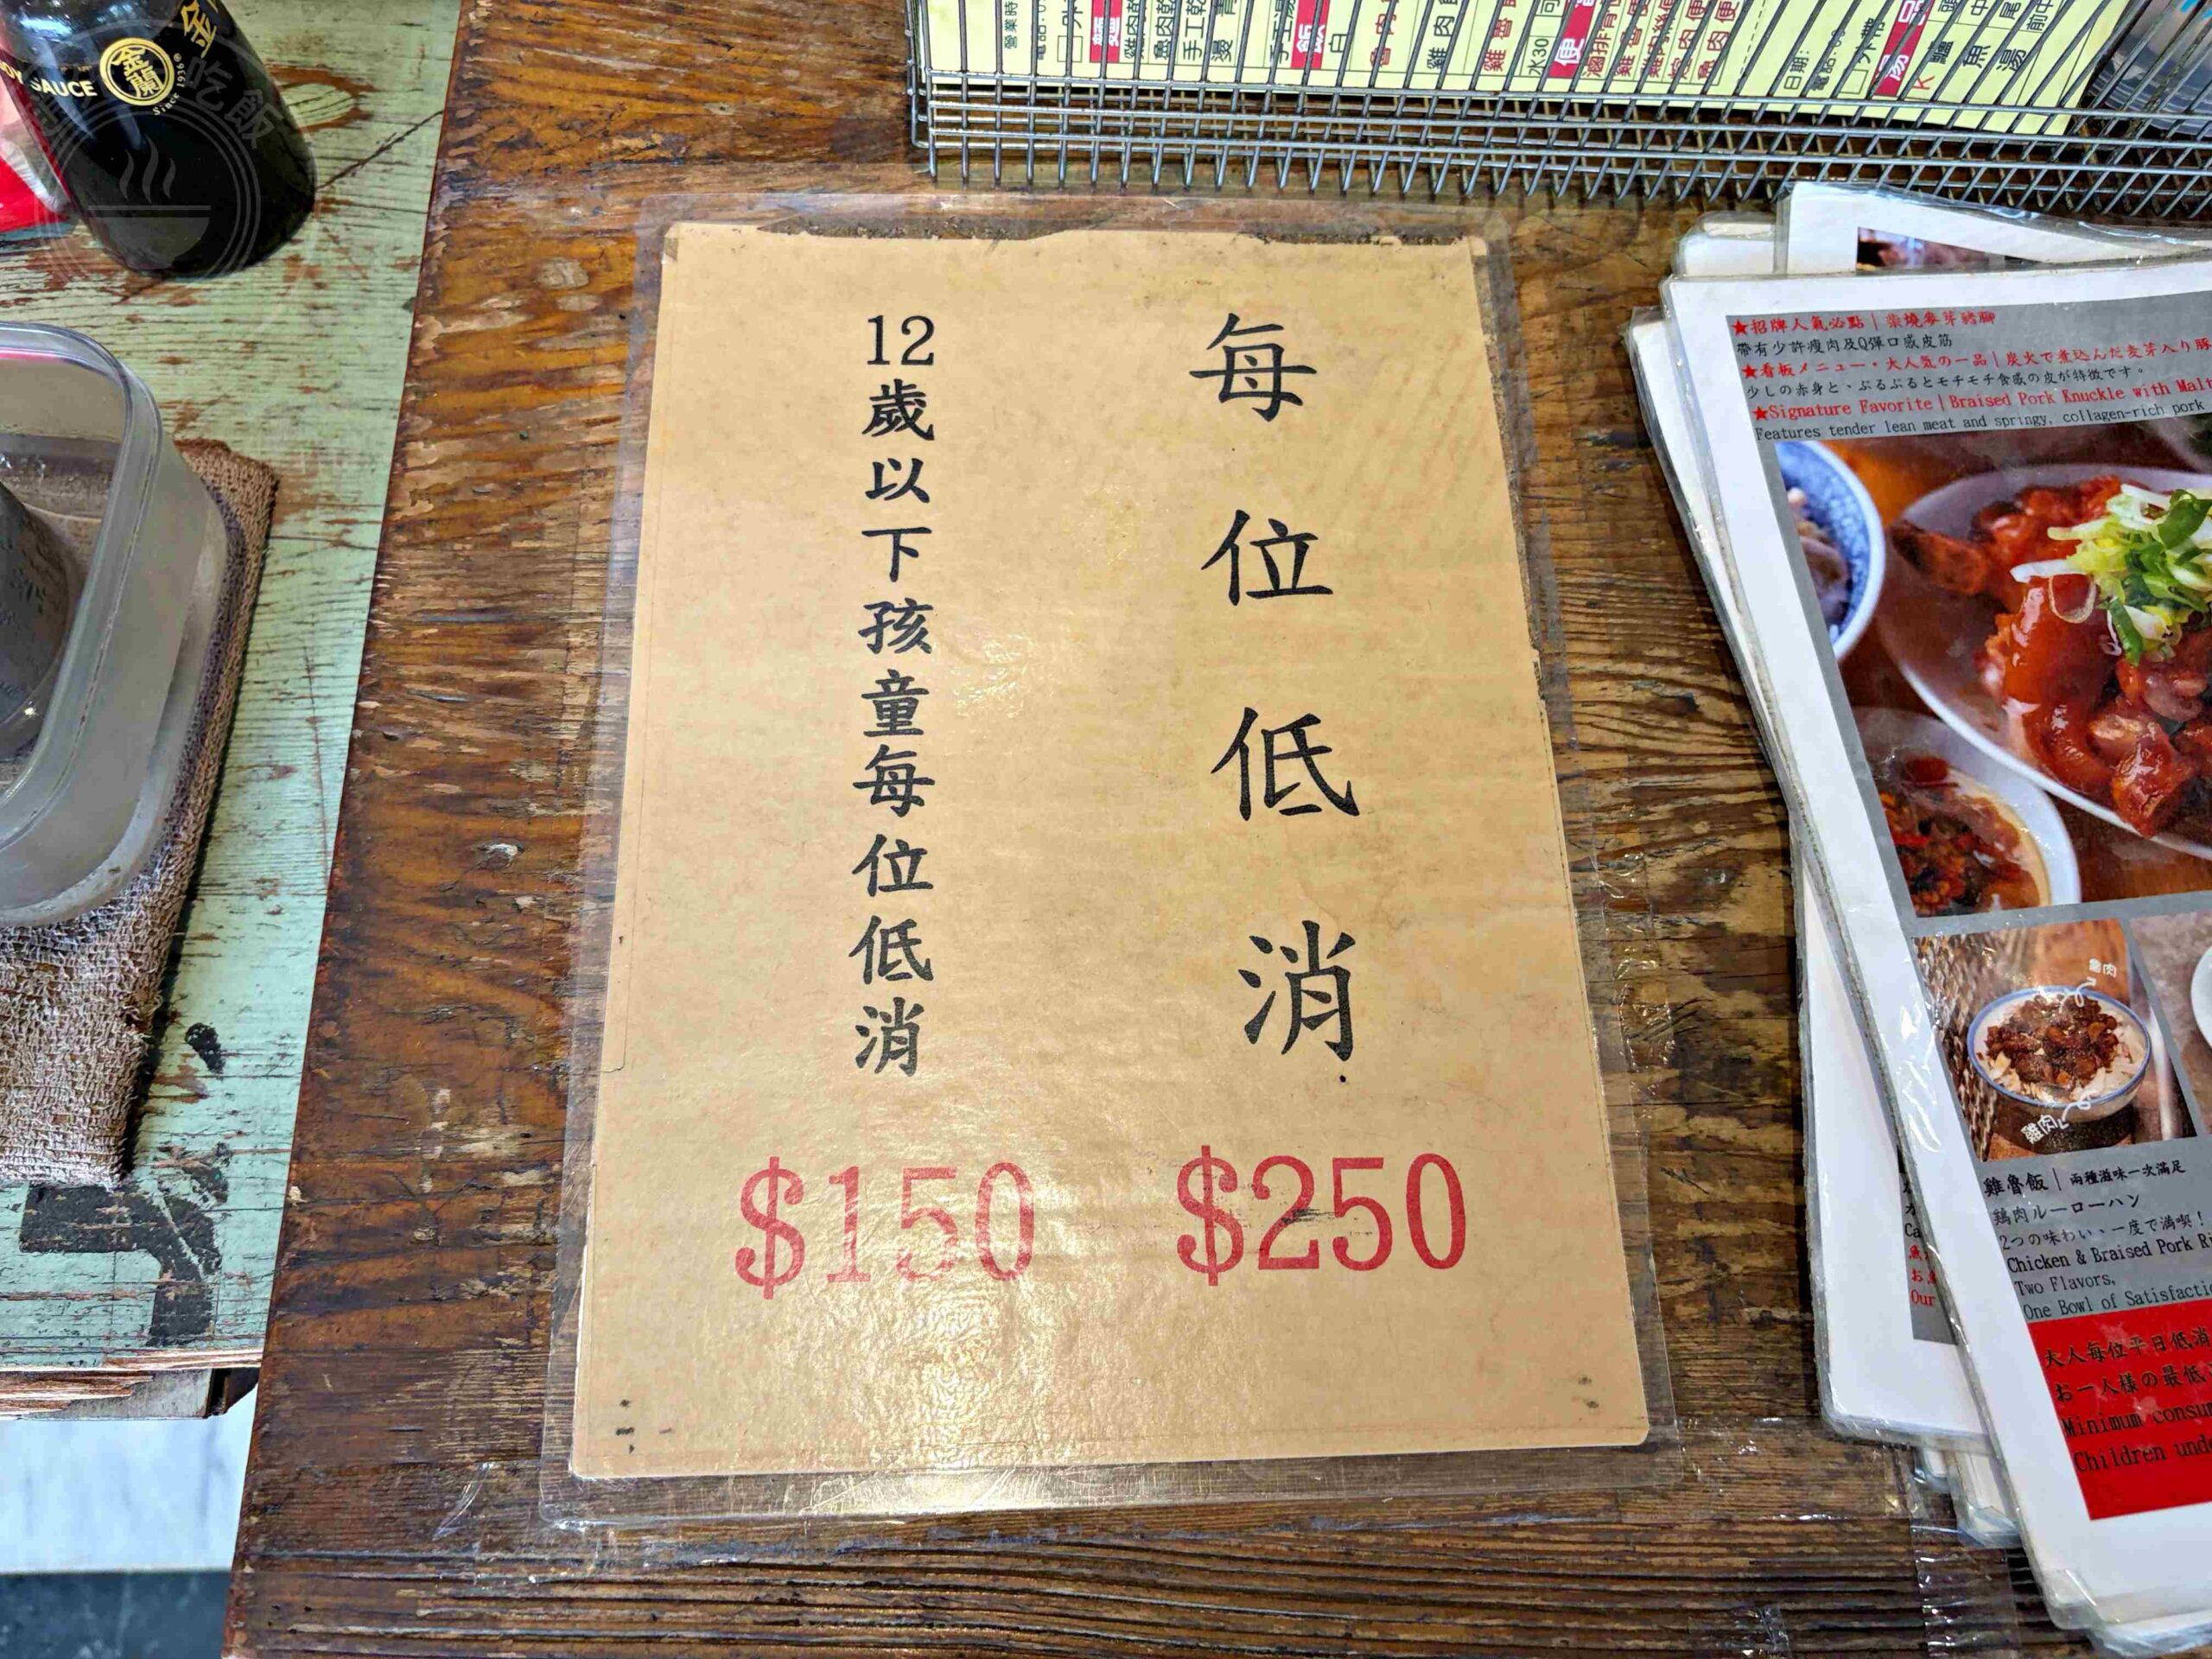 每位低消
$250
12歲以下孩童每位低消
$150
SAUCE
金蘭
Since 1936
吃飯
★招牌人氣必點｜柴燒麥芽豬腳
帶有少許瘦肉及Q彈口感皮筋
★看板メニュー・大人気の一品｜炭火で煮込んだ麦芽入り豚
少しの赤身と、ぷるぷるとモチモチ食感の皮が特徴です。
★Signature Favorite｜Braised Pork Knuckle with Malt
Features tender lean meat and springy, collagen-rich pork
魯肉
雞肉
雞魯飯｜兩種滋味一次滿足
鶏肉ルーローハン
2つの味わい、一度で満喫！
Chicken & Braised Pork Ri
Two Flavors,
One Bowl of Satisfactio
大人每位平日低消
お一人様の最低
Minimum consum
Children unde
Our